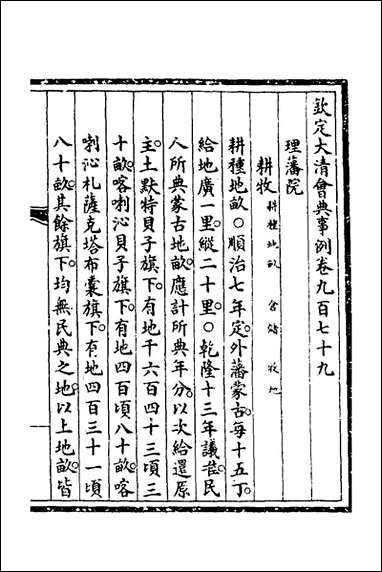 欽定大清會典事例卷九百七十九
理藩院
耕牧 耕種地畝 倉儲 牧地
耕種地畝○順治七年定。外藩蒙古。每十五丁。
給地廣一里。縱二十里。○乾隆十三年議准。民
人所典蒙古地畝。應計所典年分。以次給還原
主。土默特貝子旗下。有地千六百四十三頃三
十畝。喀喇沁貝子旗下。有地四百頃八十畝。喀
喇沁札薩克塔布囊旗下。有地四百三十一頃
八十畝。其餘旗下。均無民典之地。以上地畝。皆